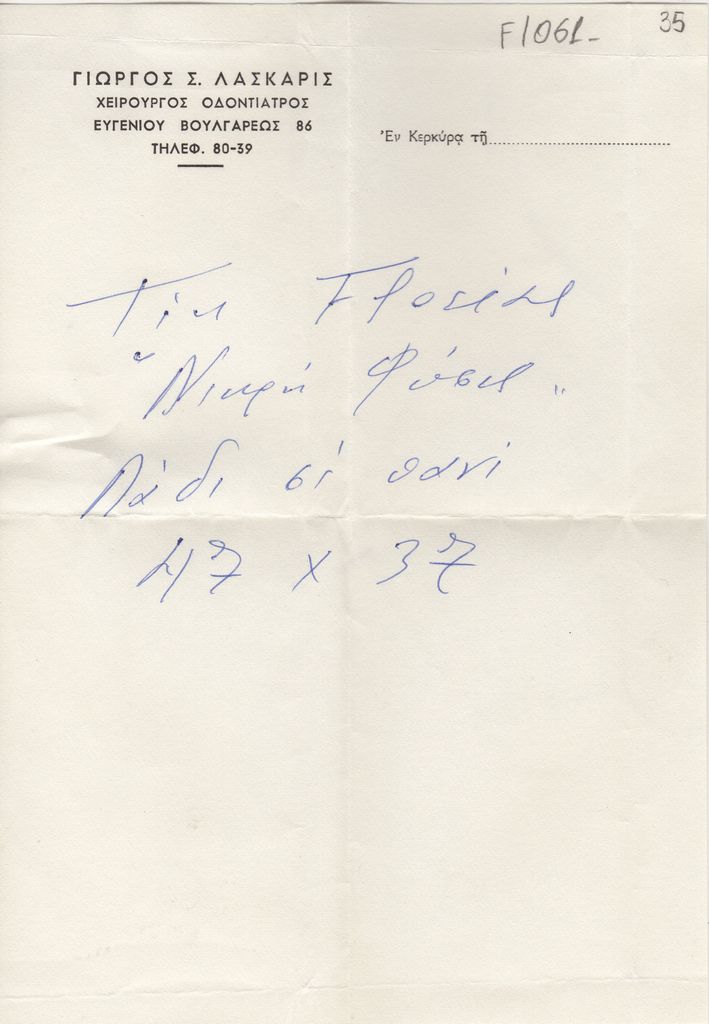 F/061-
35
ΓΙΩΡΓΟΣ Σ. ΛΑΣΚΑΡΙΣ
ΧΕΙΡΟΥΡΓΟΣ ΟΔΟΝΤΙΑΤΡΟΣ
ΕΥΓΕΝΙΟΥ ΒΟΥΛΓΑΡΕΩΣ 86
ΤΗΛΕΦ. 80-39
Ἐν Κερκύρᾳ τῇ
"Νεκρή Φύσις"
Λάδι σέ πανί
47 x 37